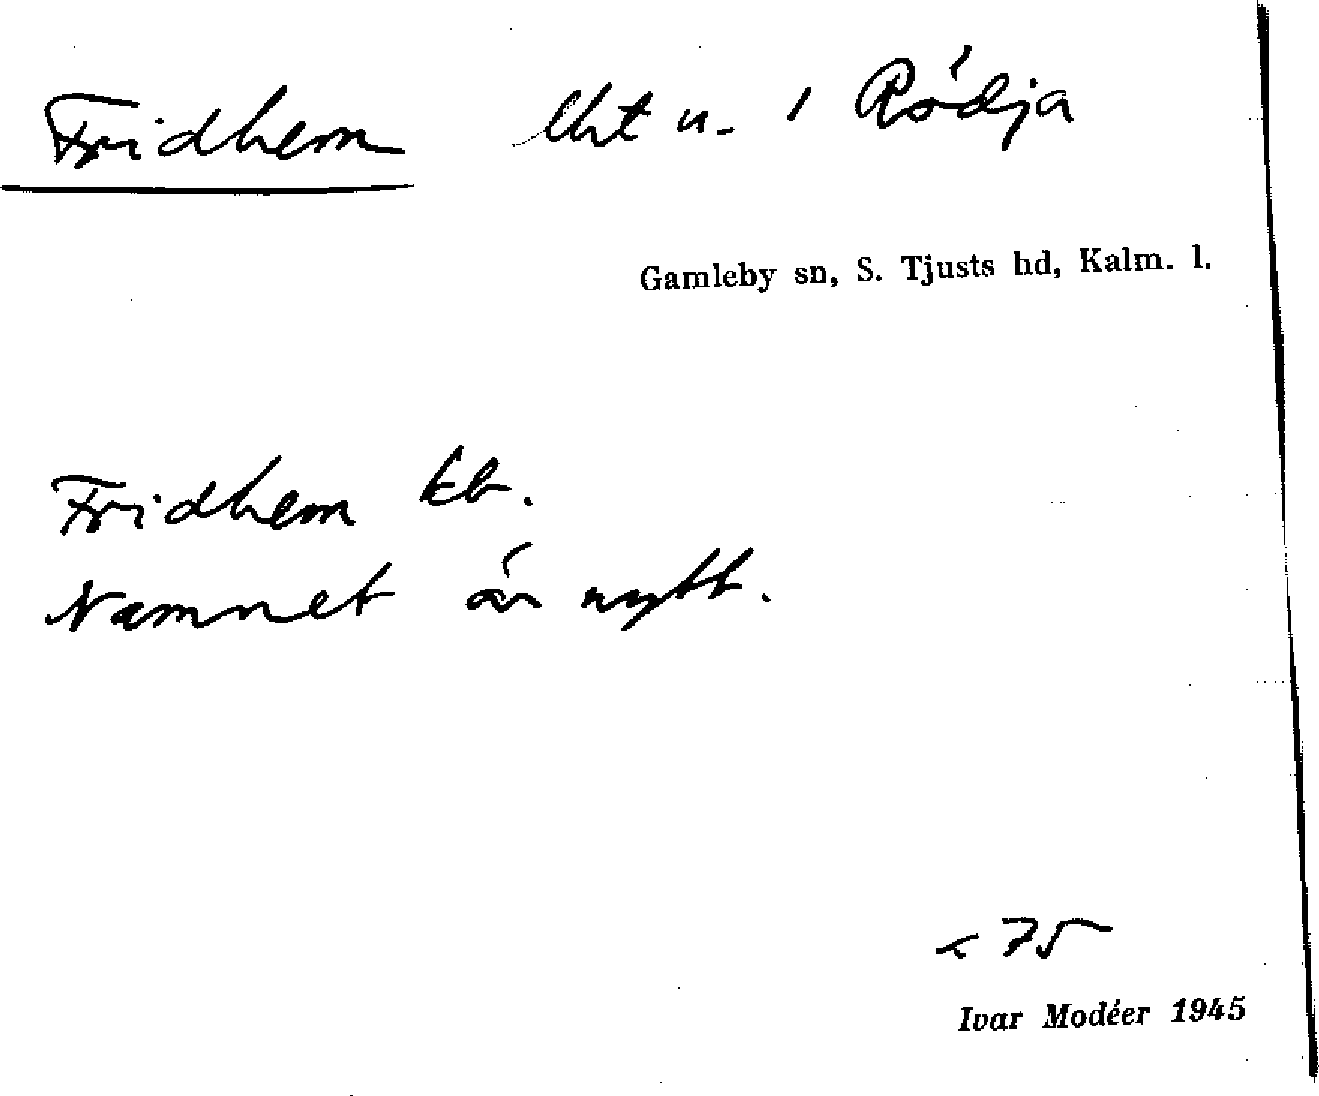 Fridhem lht u. 1 Rödja
Gamleby sn, S. Tjusts hd, Kalm. l.
Fridhem kb.
Namnet är nytt.
< 75
Ivar Modéer 1945